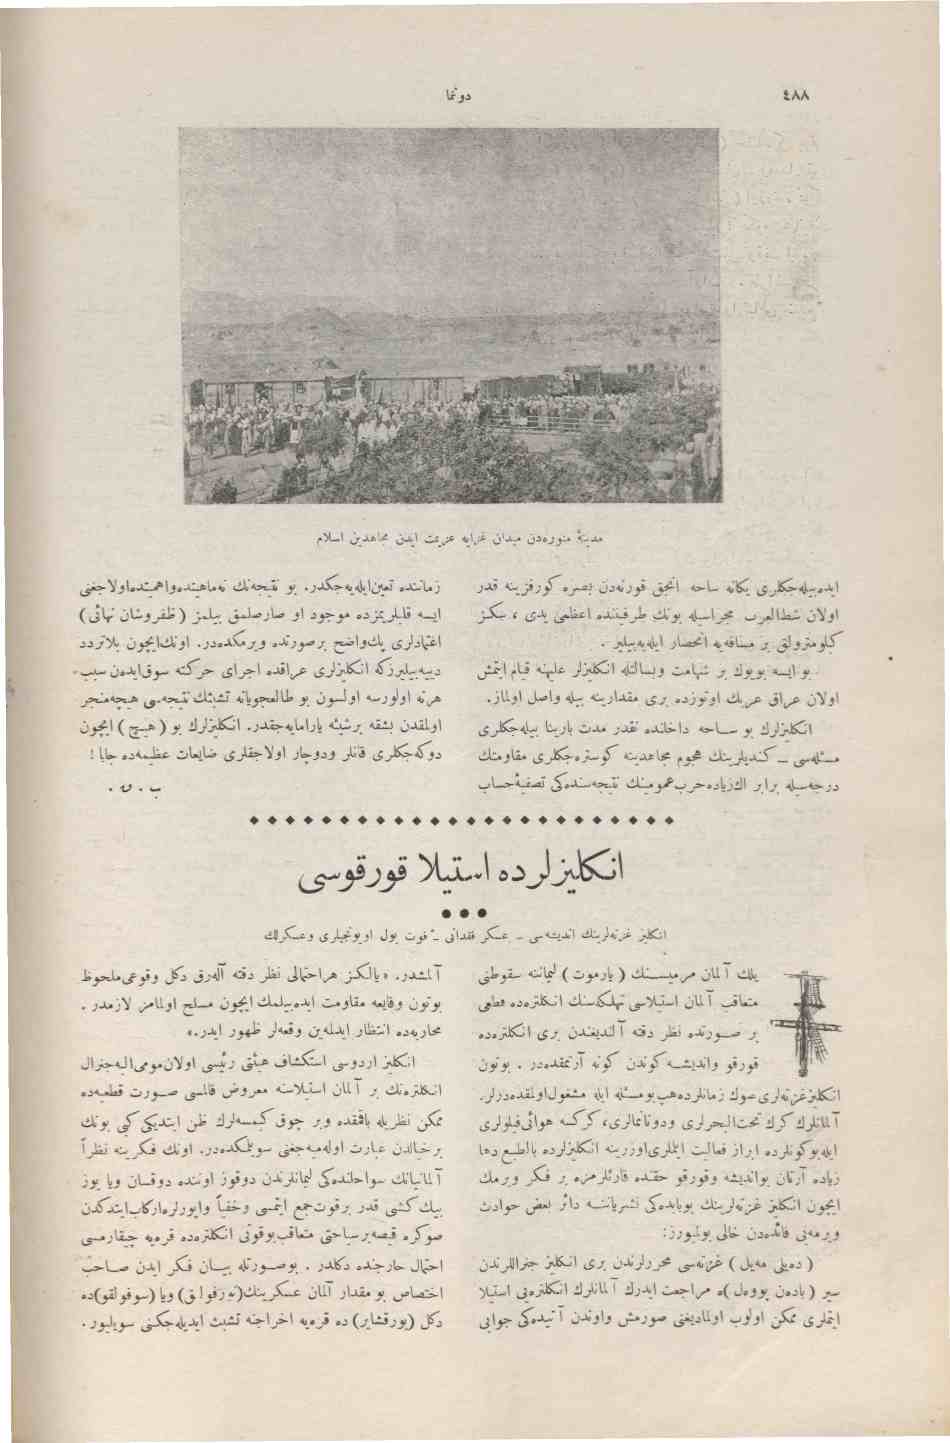 دونما
٤٨٨
مدينهٔ منوره‌دن ميدان غزايه عزيمت ايدن مجاهدين اسلام
ايده‌بيله‌جكلرى يكانه ساحه آنجق قورنه‌دن بصره كورفزينه قدر
اولان شط‌العرب مجراسيله بونك طرفيننده اعظمى يدى ، سكز
كيلومترولق بر مسافه‌يه انحصار ايليه‌بيلير .
بو ايسه بويوك بر شهامت وبسالتله انكليزلر عليهنه قيام ايتمش
اولان عراق عربك اوتوزده برى مقدارينه بيله واصل اولماز.
انكليزلرك بو ساحه داخلنده نقدر مدت بارينا بيله‌جكلرى
مسئله‌سى ـ كنديلرينك هجوم مجاهدينه كوستره‌جكلرى مقاومتك
درجه‌سيله برابر اك‌زياده حرب عمومينك نتيجه‌سنده‌كى تصفيهٔ حساب
زماننده تعين ايليه‌جكدر. بو نتيجه‌نك نه‌ماهيتده‌واهميتده‌اولاجغى
ايسه قلبلريمزده موجود او صارصلمق بيلمز ( ظفروشان نهائى )
اعتمادلرى پك‌واضح برصورتده ويرمكده‌در. اونك‌ايچون بلاتردد
دييه‌بيليرزكه انكليزلرى عراقده اجراى حركته سوق‌ايدەن سبب
هرنه اولورسه اولسون بو طالعجويانه تشبثك نتيجه‌سى هيچه‌منجر
اولمقدن بشقه برشيئه ياراميه‌جقدر. انكليزلرك بو ( هيچ ) ايچون
دوكه‌جكلرى قانلر ودوچار اولاجقلرى ضايعات عظيمه‌ده جابا !
ب . ن .
انكليزلرده استيلا قورقوسى
انكليز غزته‌لرينك انديشه‌سى ـ عسكر فقدانى ـ فوت بول اويونجيلرى وعسكرلك
پك آلمان مرميسنك ( يارموت ) ليماننه سقوطنى
متعاقب آلمان استيلاسى تهلكه‌سنك انكلتره‌ده قطعى
بر صورتده نظر دقته آلنديغندن برى انكلتره‌ده
قورقو وانديشه كوندن كونه آرتمقده‌در . بوتون
انكليزغزته‌لرى صوك زمانلرده‌هپ‌بومسئله ايله مشغول‌اولمقده‌درلر.
آلمانلرك كرك تحت‌البحرلرى ودوننمالرى، كركسه هوائى‌فيلولرى
ايله‌بوكونلرده ابراز فعاليت ايتملرى‌اوزرينه انكليزلرده بالطبع دها
زياده آرتان بوانديشه وقورقو حقنده قارئلرمزه بر فكر ويرمك
ايچون انكليز غزته‌لرينك بوبابده‌كى نشرياتنه دائر بعض حوادث
ويرمه‌يى فائده‌دن خالى بولميورز:
( ده‌يلى مه‌يل ) غزته‌سى محررلرندن برى انكليز جنراللرندن
سير ( باده‌ن پووه‌ل )ه مراجعت ايدرك آلمانلرك انكلتره‌يى استيلا
ايتملرى ممكن اولوب اولماديغنى صورمش واوندن آتيده‌كى جوابى
آلمشدر. «يالكز هراحتمالى نظر دقته آله‌رق دكل وقوعى‌ملحوظ
بوتون وقايعه مقاومت ايده‌بيلمك ايچون مسلح اولمامز لازمدر .
محاربه‌ده انتظار ايدلمه‌ين وقعه‌لر ظهور ايدر.»
انكليز اردوسى استكشاف هيئتى رئيسى اولان‌مومى‌اليه‌جنرال
انكلتره‌نك بر آلمان استيلاسنه معروض قالمسى صورت قطعيه‌ده
ممكن نظريله باقمقده وبر چوق كيمسه‌لرك ظن ايتديكى كبى بونك
برخيالدن عبارت اوله‌ميه‌جغنى سويلمكده‌در. اونك فكرينه نظراً
آلمانيانك سواحلنده‌كى ليمانلرندن دوقوز اوننده دوقسان ويا يوز
بيك كشى قدر برقوت‌جمع ايتمسى وخفياً واپورلره‌اركاب‌ايتدكدن
صوكره قيصه‌برسياحتى متعاقب‌بوقوتى انكلتره‌ده قره‌يه چيقارمسى
احتمال خارجنده دكلدر . بوصورتله بيان فكر ايدن صاحب
اختصاص بو مقدار آلمان عسكرينك(نورفولق) ويا (سوفولقو)ده
دكل (يورقشاير) ده قره‌يه اخراجنه تشبث ايديله‌جكنى سويليور.